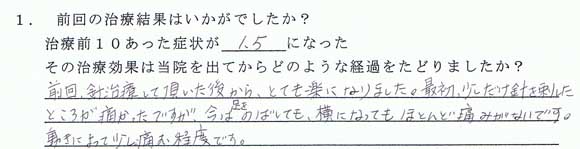 １．　前回の治療結果はいかがでしたか？
治療前１０あった症状が　1.5　になった
その治療効果は当院を出てからどのような経過をたどりましたか？
前回、針治療して頂いた後から、とても楽になりました。最初、少しだけ針を刺した
ところが痛かったですが、今は足をのばしても、横になってもほとんど痛みがないです。
動きによって少し痛む程度です。